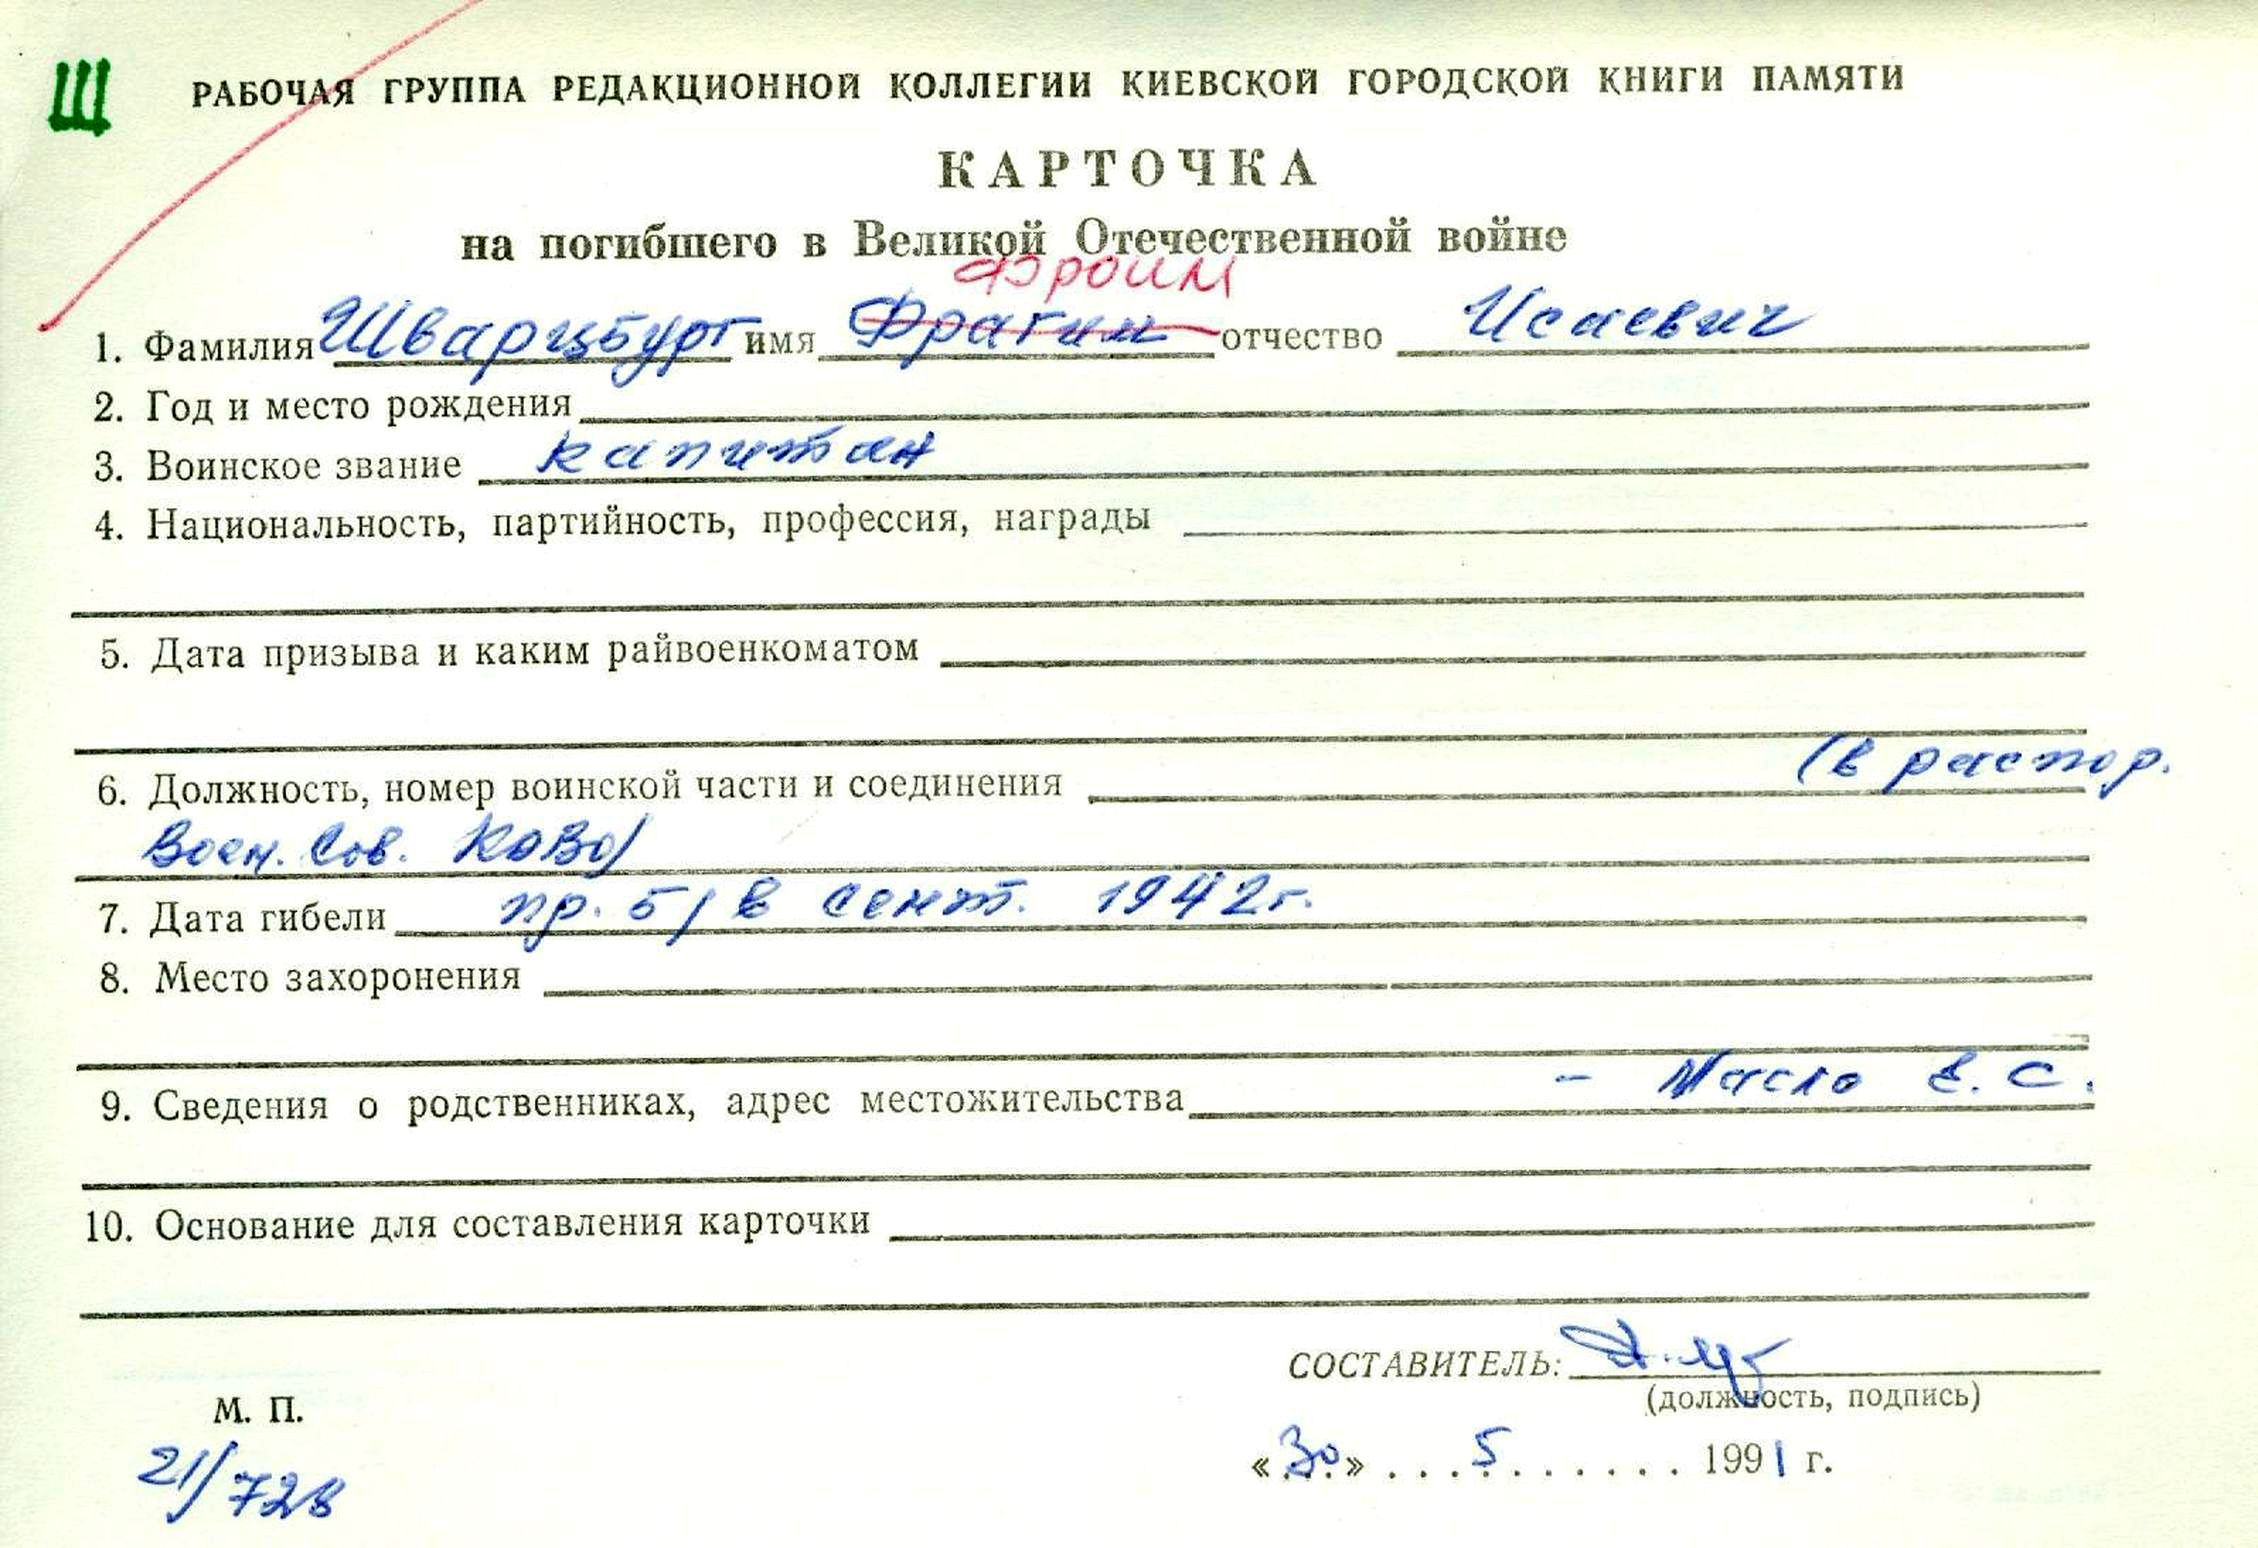 Ш РАБОЧАЯ ГРУППА РЕДАКЦИОННОЙ КОЛЛЕГИИ КИЕВСКОЙ ГОРОДСКОЙ КНИГИ ПАМЯТИ
КАРТОЧКА
на погибшего в Великой Отечественной войне
Фроим
1. Фамилия Шварцбург имя Фрагим отчество Исаевич
2. Год и место рождения
3. Воинское звание капитан
4. Национальность, партийность, профессия, награды
5. Дата призыва и каким райвоенкоматом
(в распор.
6. Должность, номер воинской части и соединения
Воен. Сов. КОВО)
7. Дата гибели пр. б/в сент. 1942г.
8. Место захоронения
9. Сведения о родственниках, адрес местожительства – Масло Е. С.
10. Основание для составления карточки
СОСТАВИТЕЛЬ:
(должность, подпись)
М. П.
«30» . . . 5 . . . . . . . 1991 г.
21/728